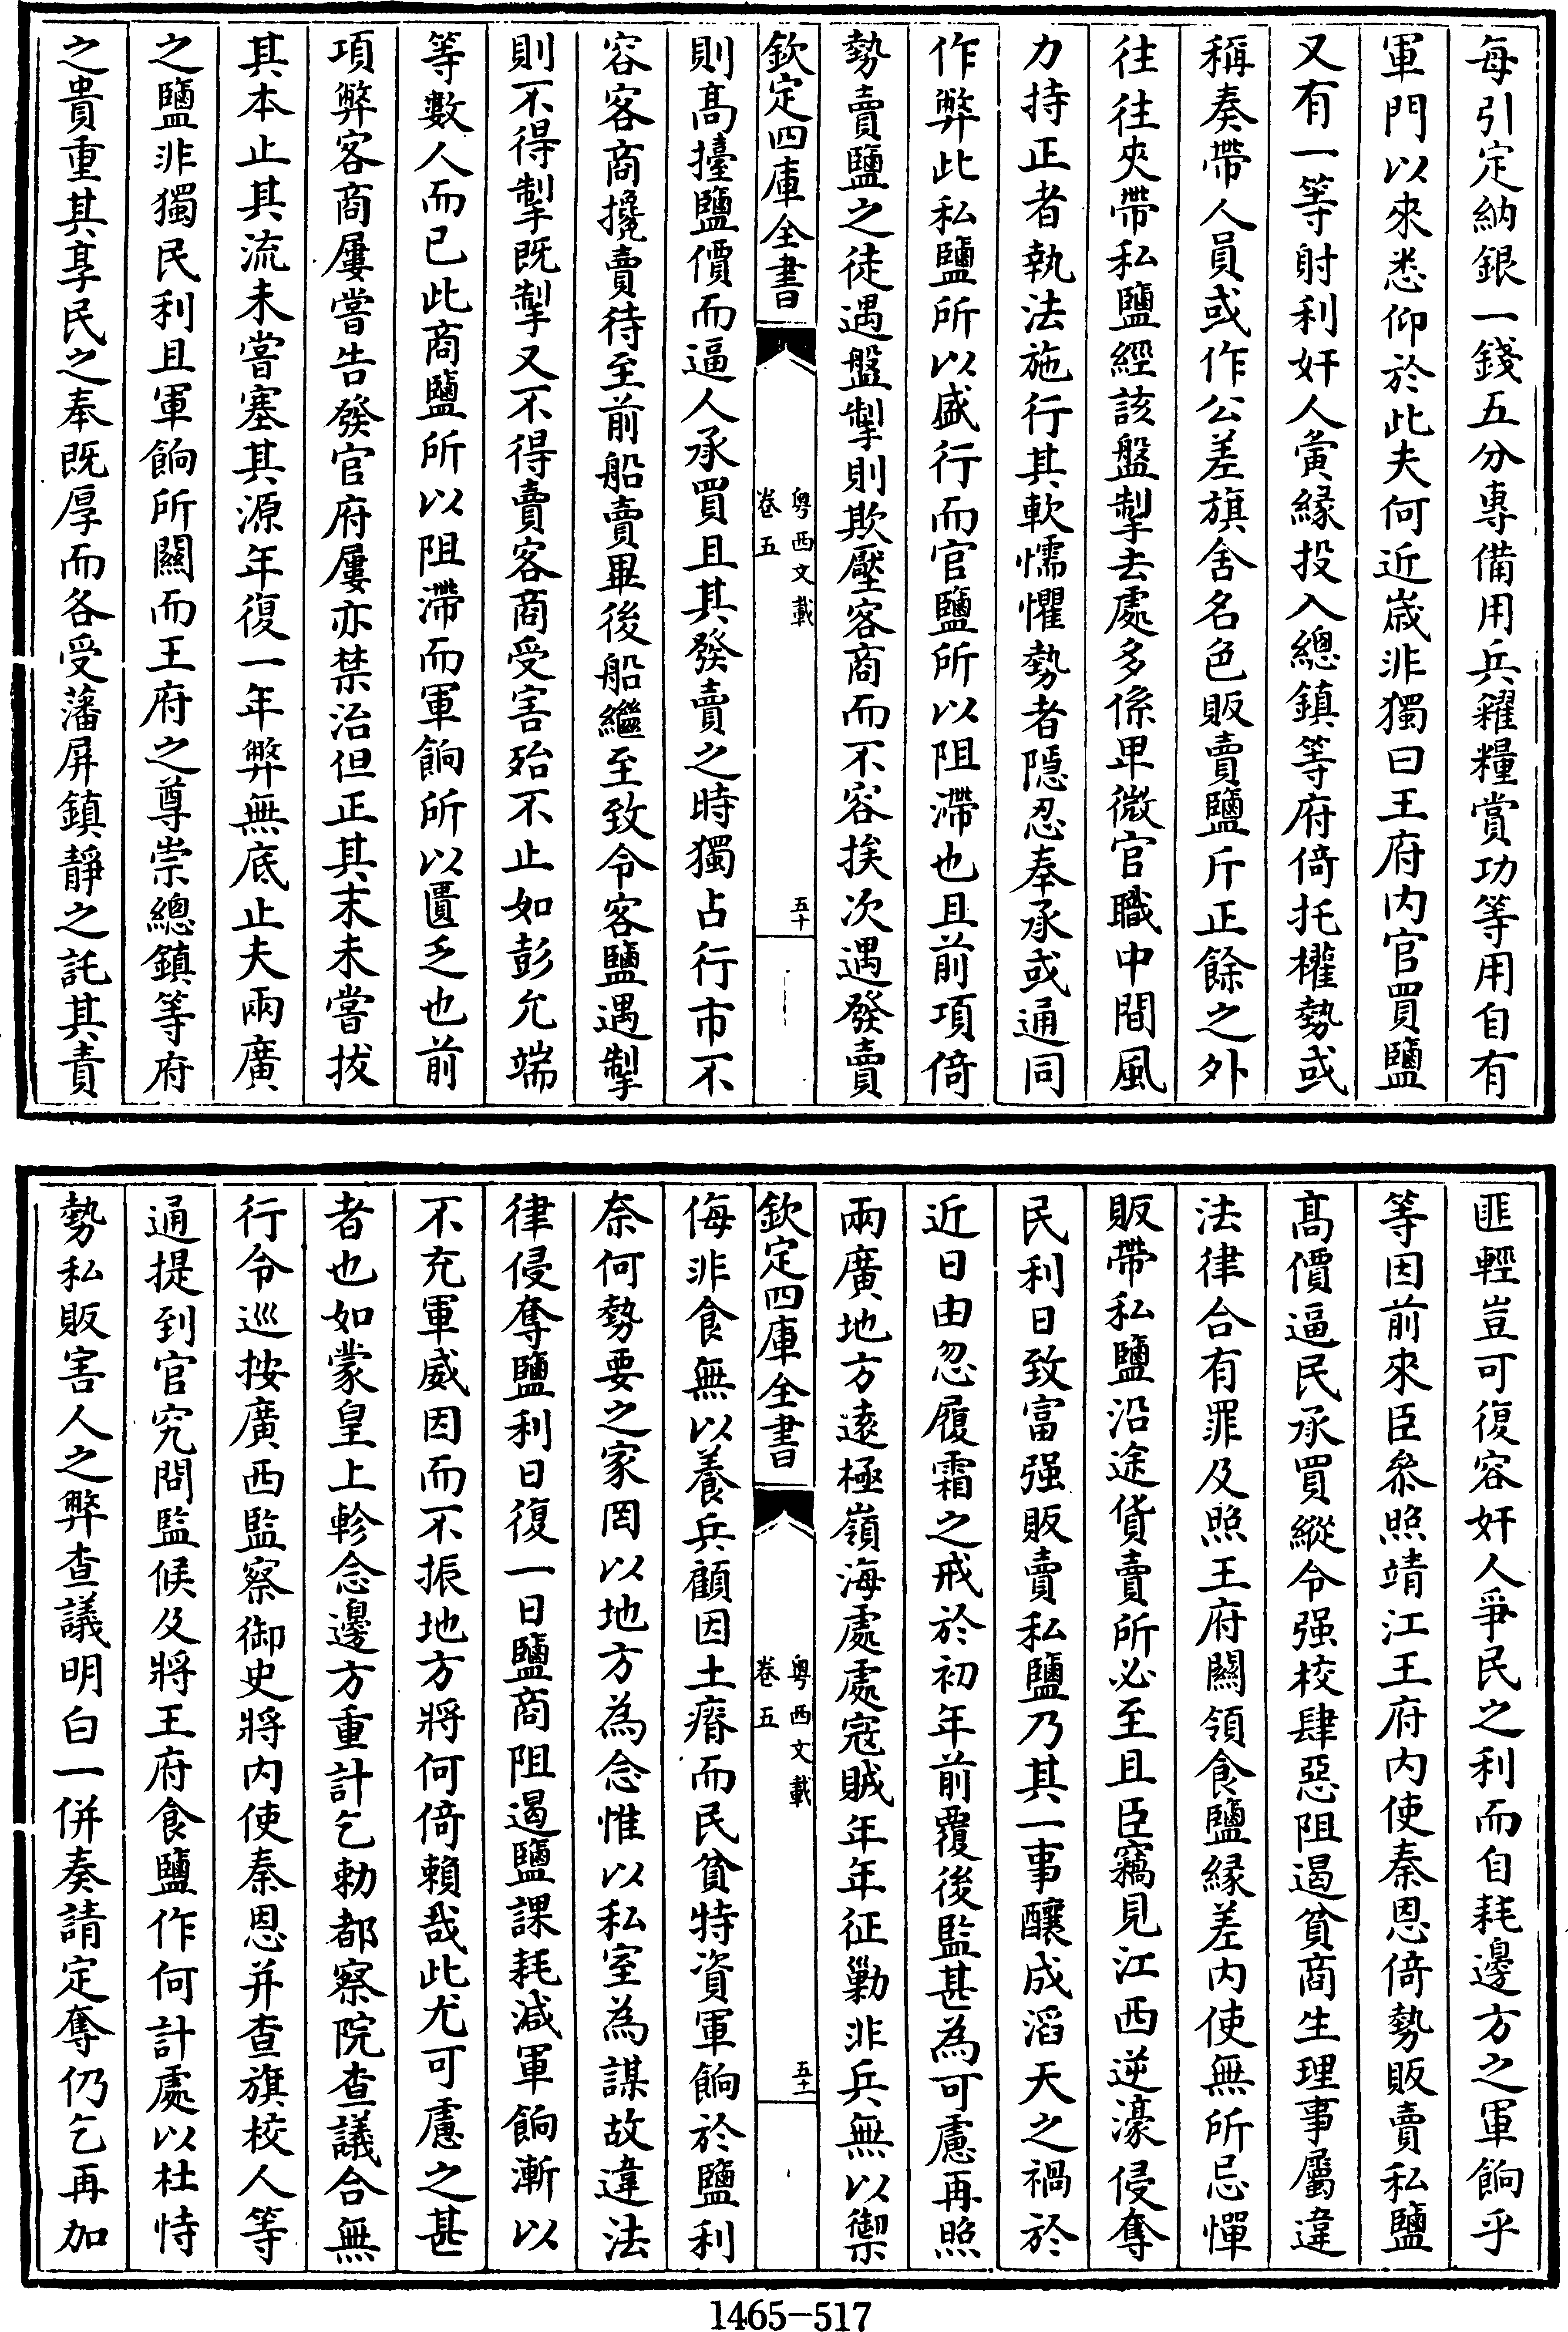 每引定納銀一錢五分專備用兵糴糧賞功等用自有
軍門以來悉仰於此夫何近歲非獨曰王府内官買鹽
又有一等射利奸人夤縁投入總鎮等府倚托權勢或
稱奏帶人員或作公差旗舍名色販賣鹽斤正餘之外
往往夾帶私鹽經該盤掣去處多係卑微官職中間風
力持正者執法施行其軟懦懼勢者隱忍奉承或通同
作弊此私鹽所以盛行而官鹽所以阻滯也且前項倚
勢賣鹽之徒遇盤掣則欺壓客商而不容挨次遇發賣
欽定四庫全書
粤西文載
卷五
五十
則髙擡鹽價而逼人承買且其發賣之時獨占行市不
容客商攙賣待至前船賣畢後船繼至致令客鹽遇掣
則不得掣既掣又不得賣客商受害殆不止如彭允端
等數人而已此商鹽所以阻滯而軍餉所以匱乏也前
項弊客商屢嘗告發官府屢亦禁治但正其末未嘗拔
其本止其流未嘗塞其源年復一年弊無底止夫兩廣
之鹽非獨民利且軍餉所闗而王府之尊崇總鎮等府
之貴重其享民之奉既厚而各受藩屏鎮靜之託其責
匪輕豈可復容奸人爭民之利而自耗邊方之軍餉乎
等因前來臣叅照靖江王府内使秦恩倚勢販賣私鹽
髙價逼民承買縱令强校肆惡阻遏貧商生理事屬違
法律合有罪及照王府闗領食鹽縁差内使無所忌憚
販帶私鹽沿途貨賣所必至且臣竊見江西逆濠侵奪
民利日致富强販賣私鹽乃其一事釀成滔天之禍於
近日由忽履霜之戒於初年前覆後監甚為可慮再照
兩廣地方逺極嶺海處處寇賊年年征勦非兵無以禦
欽定四庫全書
粤西文載
卷五
五十一
侮非食無以養兵顧因土瘠而民貧特資軍餉於鹽利
奈何勢要之家罔以地方為念惟以私室為謀故違法
律侵奪鹽利日復一日鹽商阻遏鹽課耗減軍餉漸以
不充軍威因而不振地方將何倚賴哉此尤可慮之甚
者也如蒙皇上軫念邊方重計乞勅都察院查議合無
行令巡按廣西監察御史將内使秦恩并查旗校人等
通提到官究問監候及將王府食鹽作何計處以杜恃
勢私販害人之弊查議明白一併奏請定奪仍乞再加
1465-517